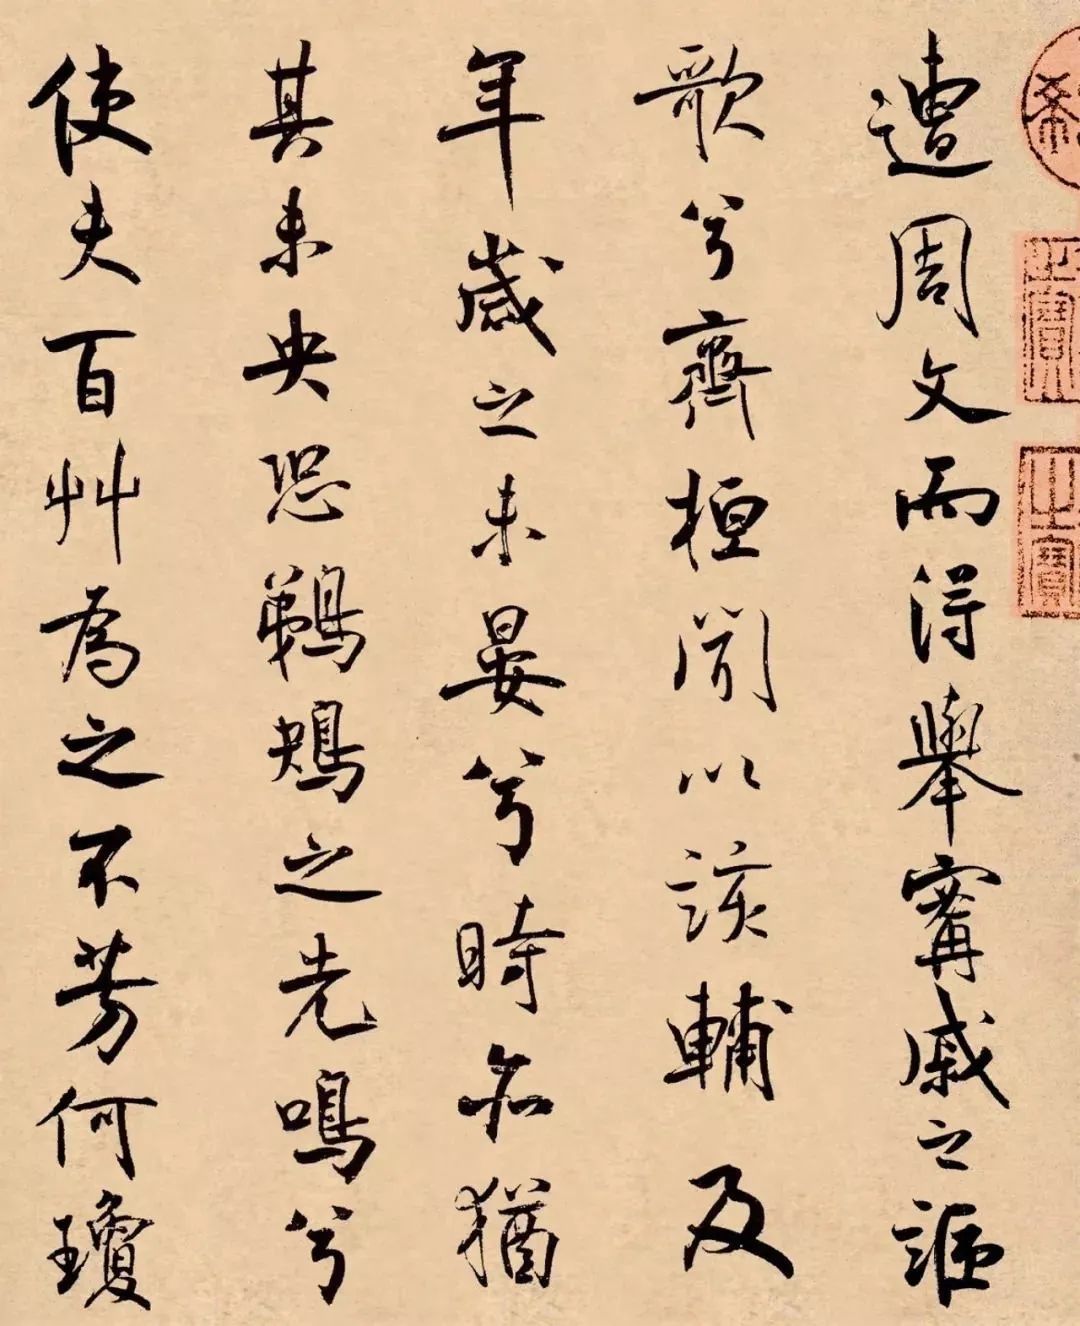 遭周文而得舉寗戚之謳
歌兮齊桓聞以該輔及
年歲之未晏兮時亦猶
其未央恐鵜鴂之先鳴兮
使夫百艸為之不芳何瓊